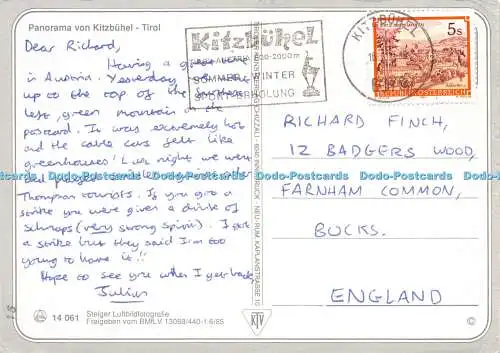 Panorama von Kitzbühel - Tirol
Dear Richard,
Having a great time
in Austria. Yesterday
up to the top of the furthest
left, green mountain on the
postcard. It was extremely hot
and the cable cars felt like
greenhouses! Last night we went
and played skittles
Thompson tourists. If you got a
strike you were given a drink of
schnaps (very strong spirit). I got
a strike but they said I'm too
young to have it!!
Hope to see you when I get back,
Julian
14 061
Steiger Luftbildfotografie
Freigegeben vom BMfLV 13088/440-1·6/85
Kitzbühel
800-2000m
SOMMER WINTER
SPORT ERHOLUNG
KITZBÜHEL
5s
REPUBLIK ÖSTERREICH
RICHARD FINCH,
12 BADGERS WOOD,
FARNHAM COMMON,
BUCKS.
ENGLAND
KTV
©
Dodo-Postcards Dodo-Postcards Dodo-Postcards